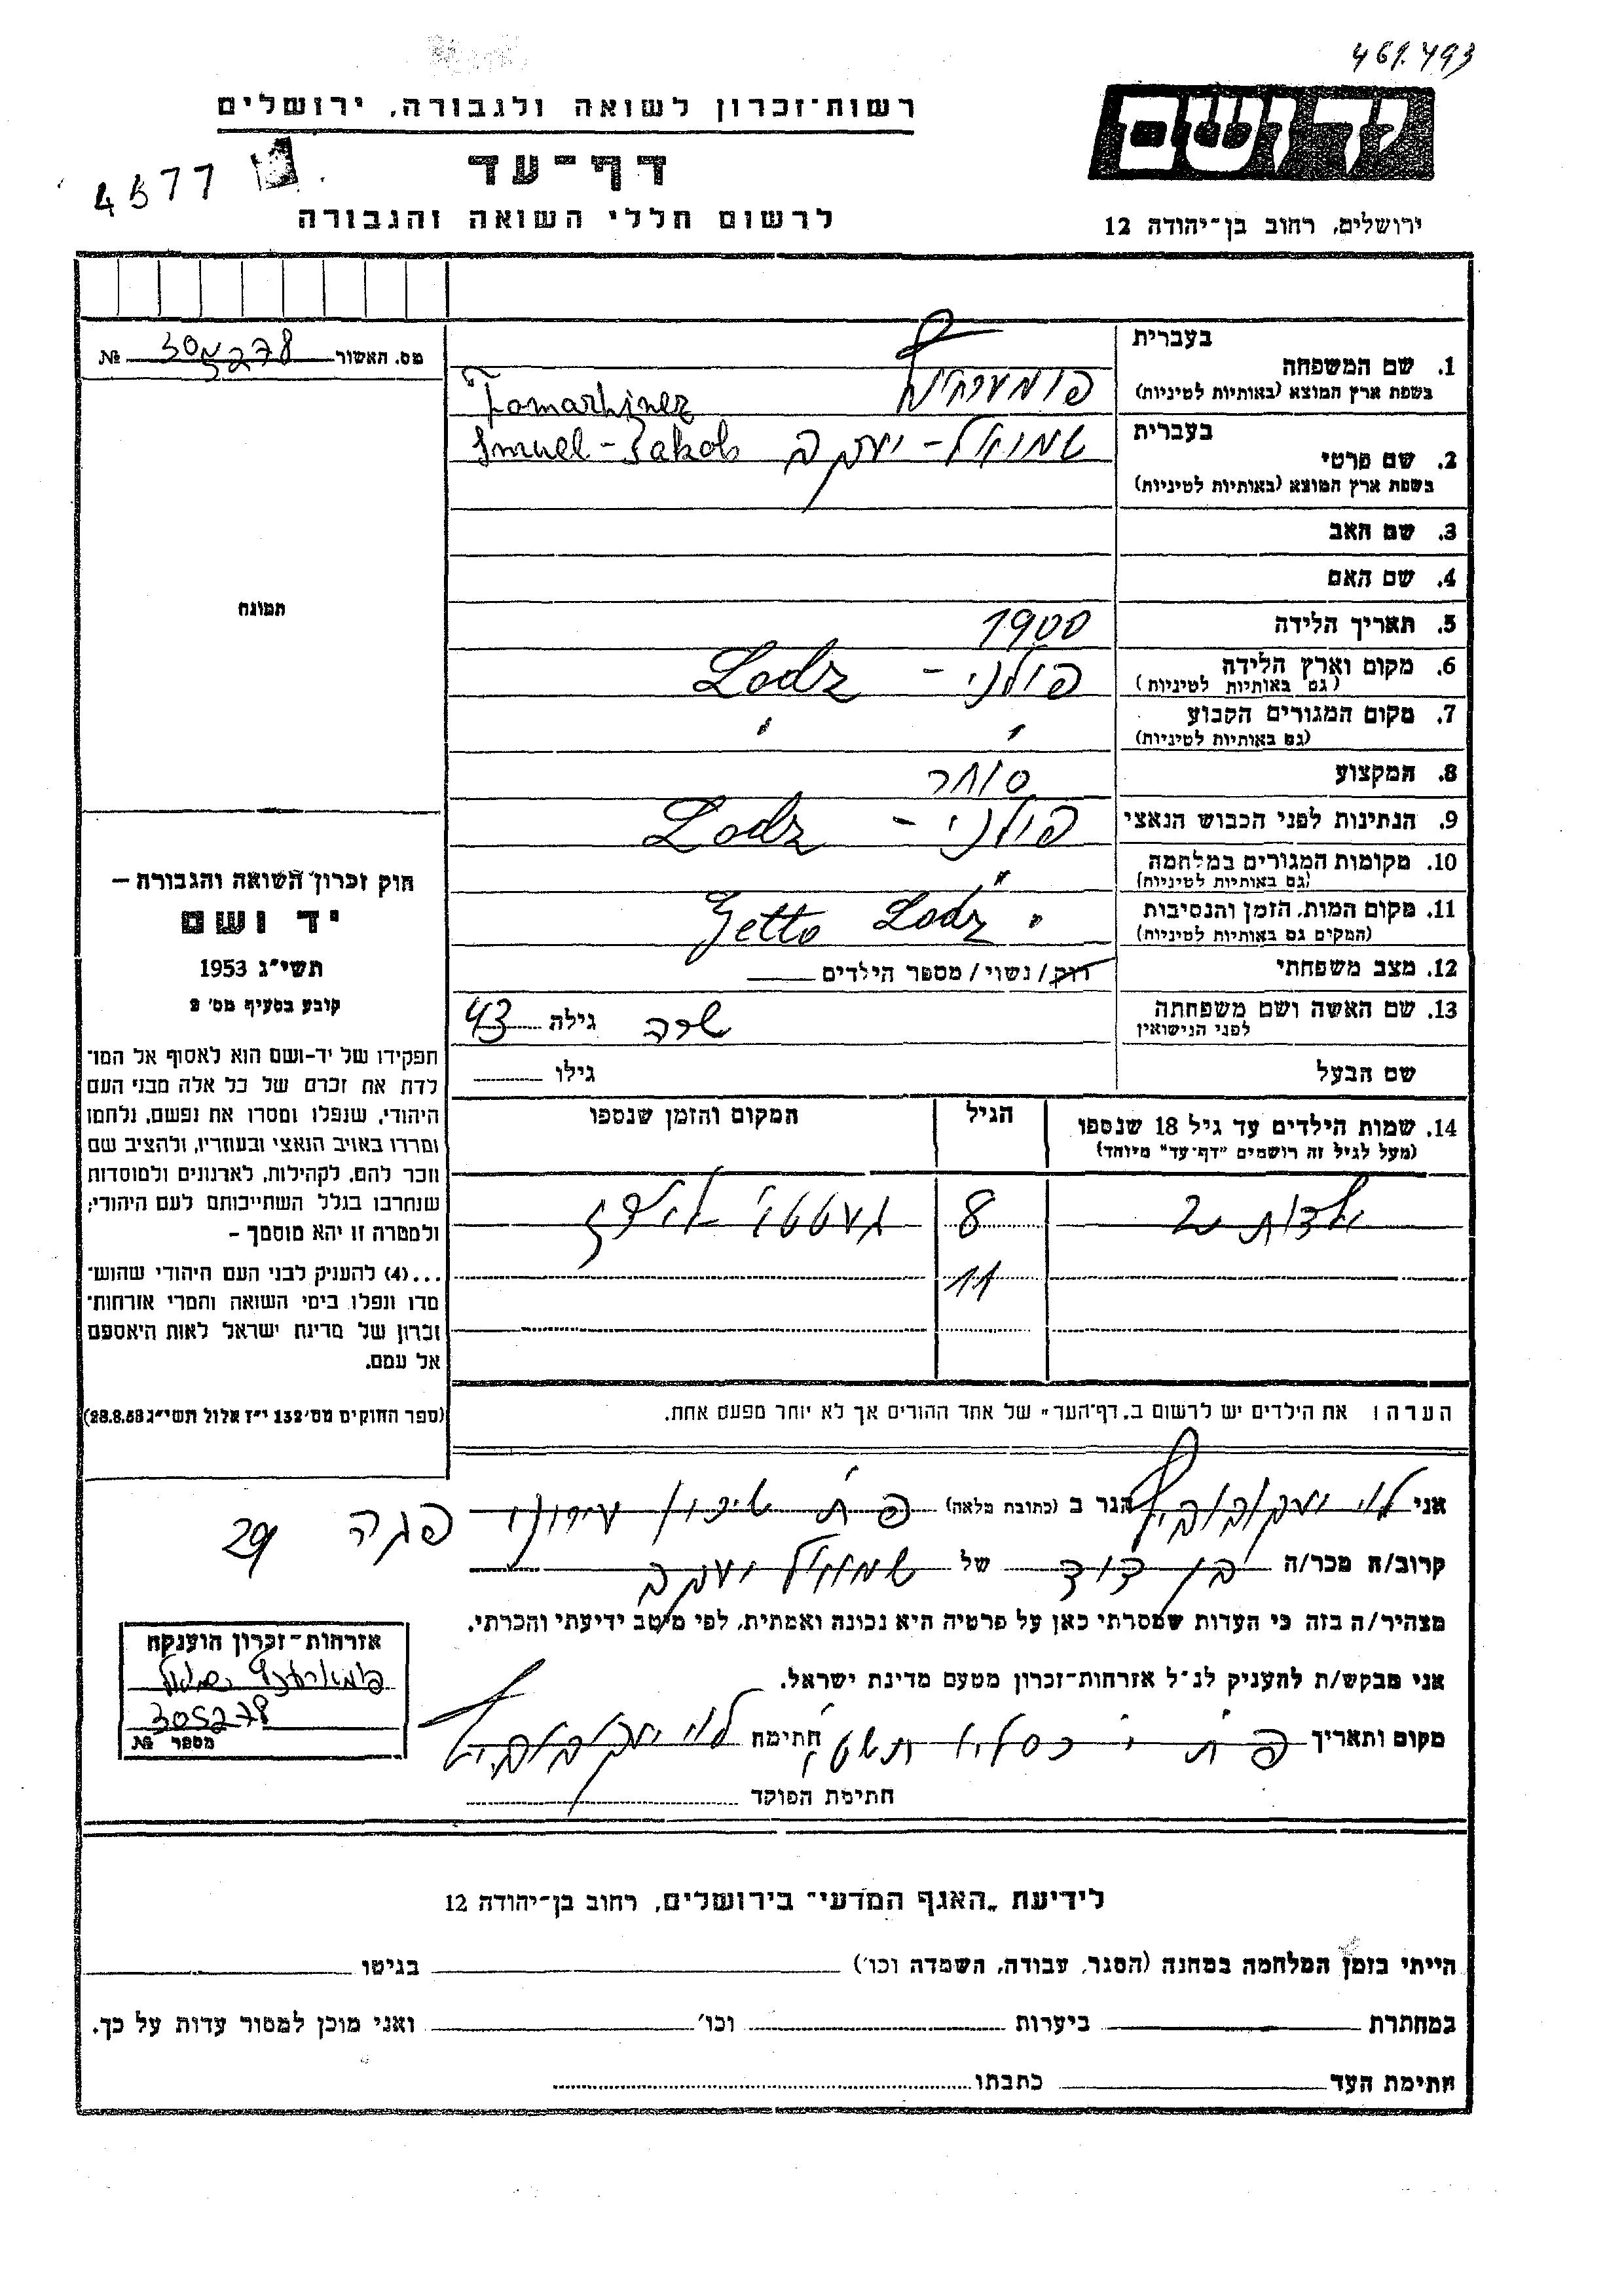 461.493
רשות-זכרון לשואה ולגבורה, ירושלים
יד ושם
דף-עד
4577
לרשום חללי השואה והגבורה
ירושלים, רחוב בן-יהודה 12
מס. האשור 305278 №
בעברית
1. שם המשפחה
בשפת ארץ המוצא (באותיות לטיניות)
בעברית
2. שם פרטי שמואל-יעקב Smuel-Jakob
בשפת ארץ המוצא (באותיות לטיניות)
3. שם האב
4. שם האם
5. תאריך הלידה 1900
6. מקום וארץ הלידה פולני - Lodz
(גם באותיות לטיניות)
7. מקום המגורים הקבוע " "
(גם באותיות לטיניות)
8. המקצוע סוחר
9. הנתינות לפני הכבוש הנאצי פולני - Lodz
10. מקומות המגורים במלחמה "
(גם באותיות לטיניות)
11. מקום המות, הזמן והנסיבות " Getto Lodz
(המקום גם באותיות לטיניות)
12. מצב משפחתי רווק/נשוי/מספר הילדים
13. שם האשה ושם משפחתה שרה גילה 43
לפני הנישואין
שם הבעל גילו
14. שמות הילדים עד גיל 18 שנספו הגיל המקום והזמן שנספו
(מעל לגיל זה רושמים "דף-עד" מיוחד)
ילדות 2 8 געטטו לודז
11
הערה: את הילדים יש לרשום ב„דף-העד" של אחד ההורים אך לא יותר מפעם אחת.
תמונה
חוק זכרון השואה והגבורה –
יד ושם
תשי"ג 1953
קובע בסעיף מס' 2
תפקידו של יד-ושם הוא לאסוף אל המו־
לדת את זכרם של כל אלה מבני העם
היהודי, שנפלו ומסרו את נפשם, נלחמו
ומרדו באויב הנאצי ובעוזריו, ולהציב שם
וזכר להם, לקהילות, לארגונים ולמוסדות
שנחרבו בגלל השתייכותם לעם היהודי;
ולמטרה זו יהא מוסמך –
...(4) להעניק לבני העם היהודי שהוש־
מדו ונפלו בימי השואה והמרי אזרחות־
זכרון של מדינת ישראל לאות היאספם
אל עמם.
(ספר החוקים מס' 132 י"ז אלול תשי"ג 28.8.53)
אני לוי יעקובוביץ הגר ב (כתובת מלאה) פ"ת שיכון עירוני פגה 29
קרוב/ה מכר/ה בן דוד של שמואל יעקב
מצהיר/ה בזה כי העדות שמסרתי כאן על פרטיה היא נכונה ואמתית, לפי מיטב ידיעתי והכרתי.
אני מבקש/ת להעניק לנ"ל אזרחות-זכרון מטעם מדינת ישראל.
מקום ותאריך פ"ת י' כסליו חתימת לוי יעקובוביץ
חתימת הפוקד
אזרחות-זכרון הוענקה
305278
מספר №
לידיעת „האגף המדעי" בירושלים, רחוב בן-יהודה 12
הייתי בזמן המלחמה במחנה (הסגר, עבודה, השמדה וכו') בגיטו
במחתרת ביערות וכו' ואני מוכן למסור עדות על כך.
חתימת העד כתבתו